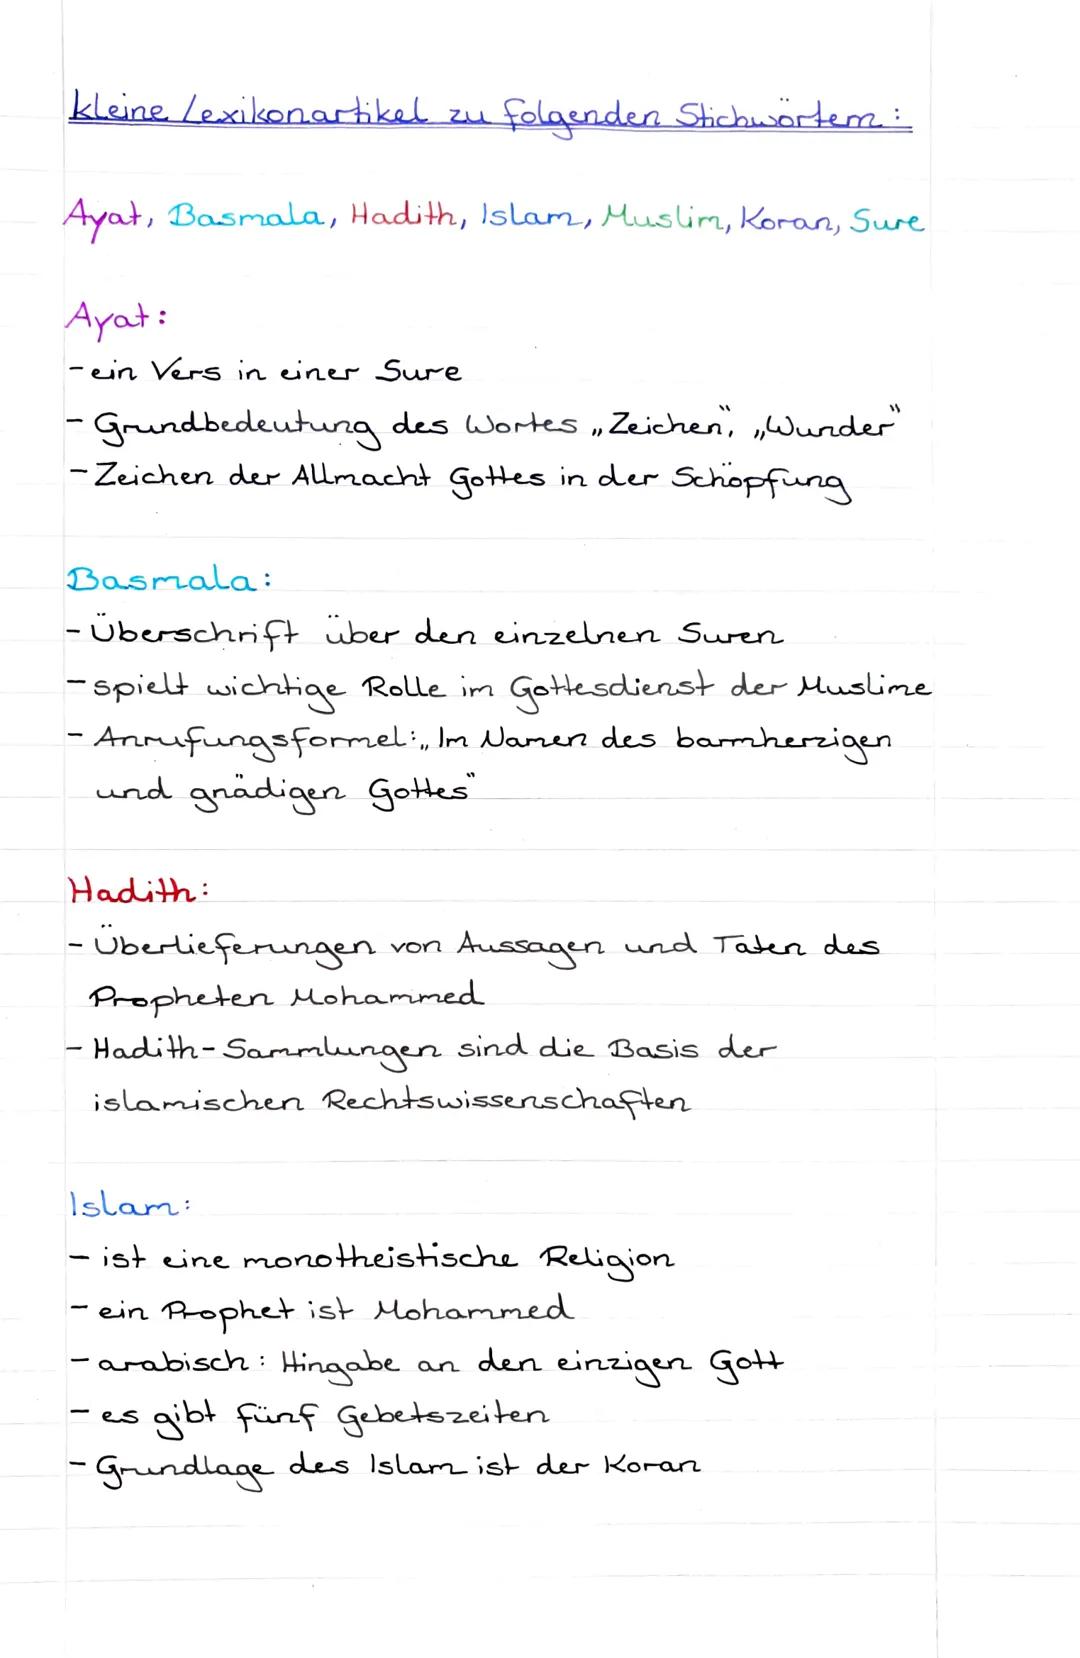 kleine Lexikonartikel zu folgenden Stichwörtern:
Ayat, Basmala, Hadith, Islam, Muslim, Koran, Sure
Ayat:
- ein Vers in einer Sure
- Grundbedeutung des Wortes „Zeichen“, „Wunder“
- Zeichen der Allmacht Gottes in der Schöpfung
Basmala:
- Überschrift über den einzelnen Suren
- spielt wichtige Rolle im Gottesdienst der Muslime
- Anrufungsformel: „Im Namen des barmherzigen
und gnädigen Gottes“
Hadith:
- Überlieferungen von Aussagen und Taten des
Propheten Mohammed
- Hadith-Sammlungen sind die Basis der
islamischen Rechtswissenschaften
Islam:
- ist eine monotheistische Religion
- ein Prophet ist Mohammed
- arabisch: Hingabe an den einzigen Gott
- es gibt fünf Gebetszeiten
- Grundlage des Islam ist der Koran